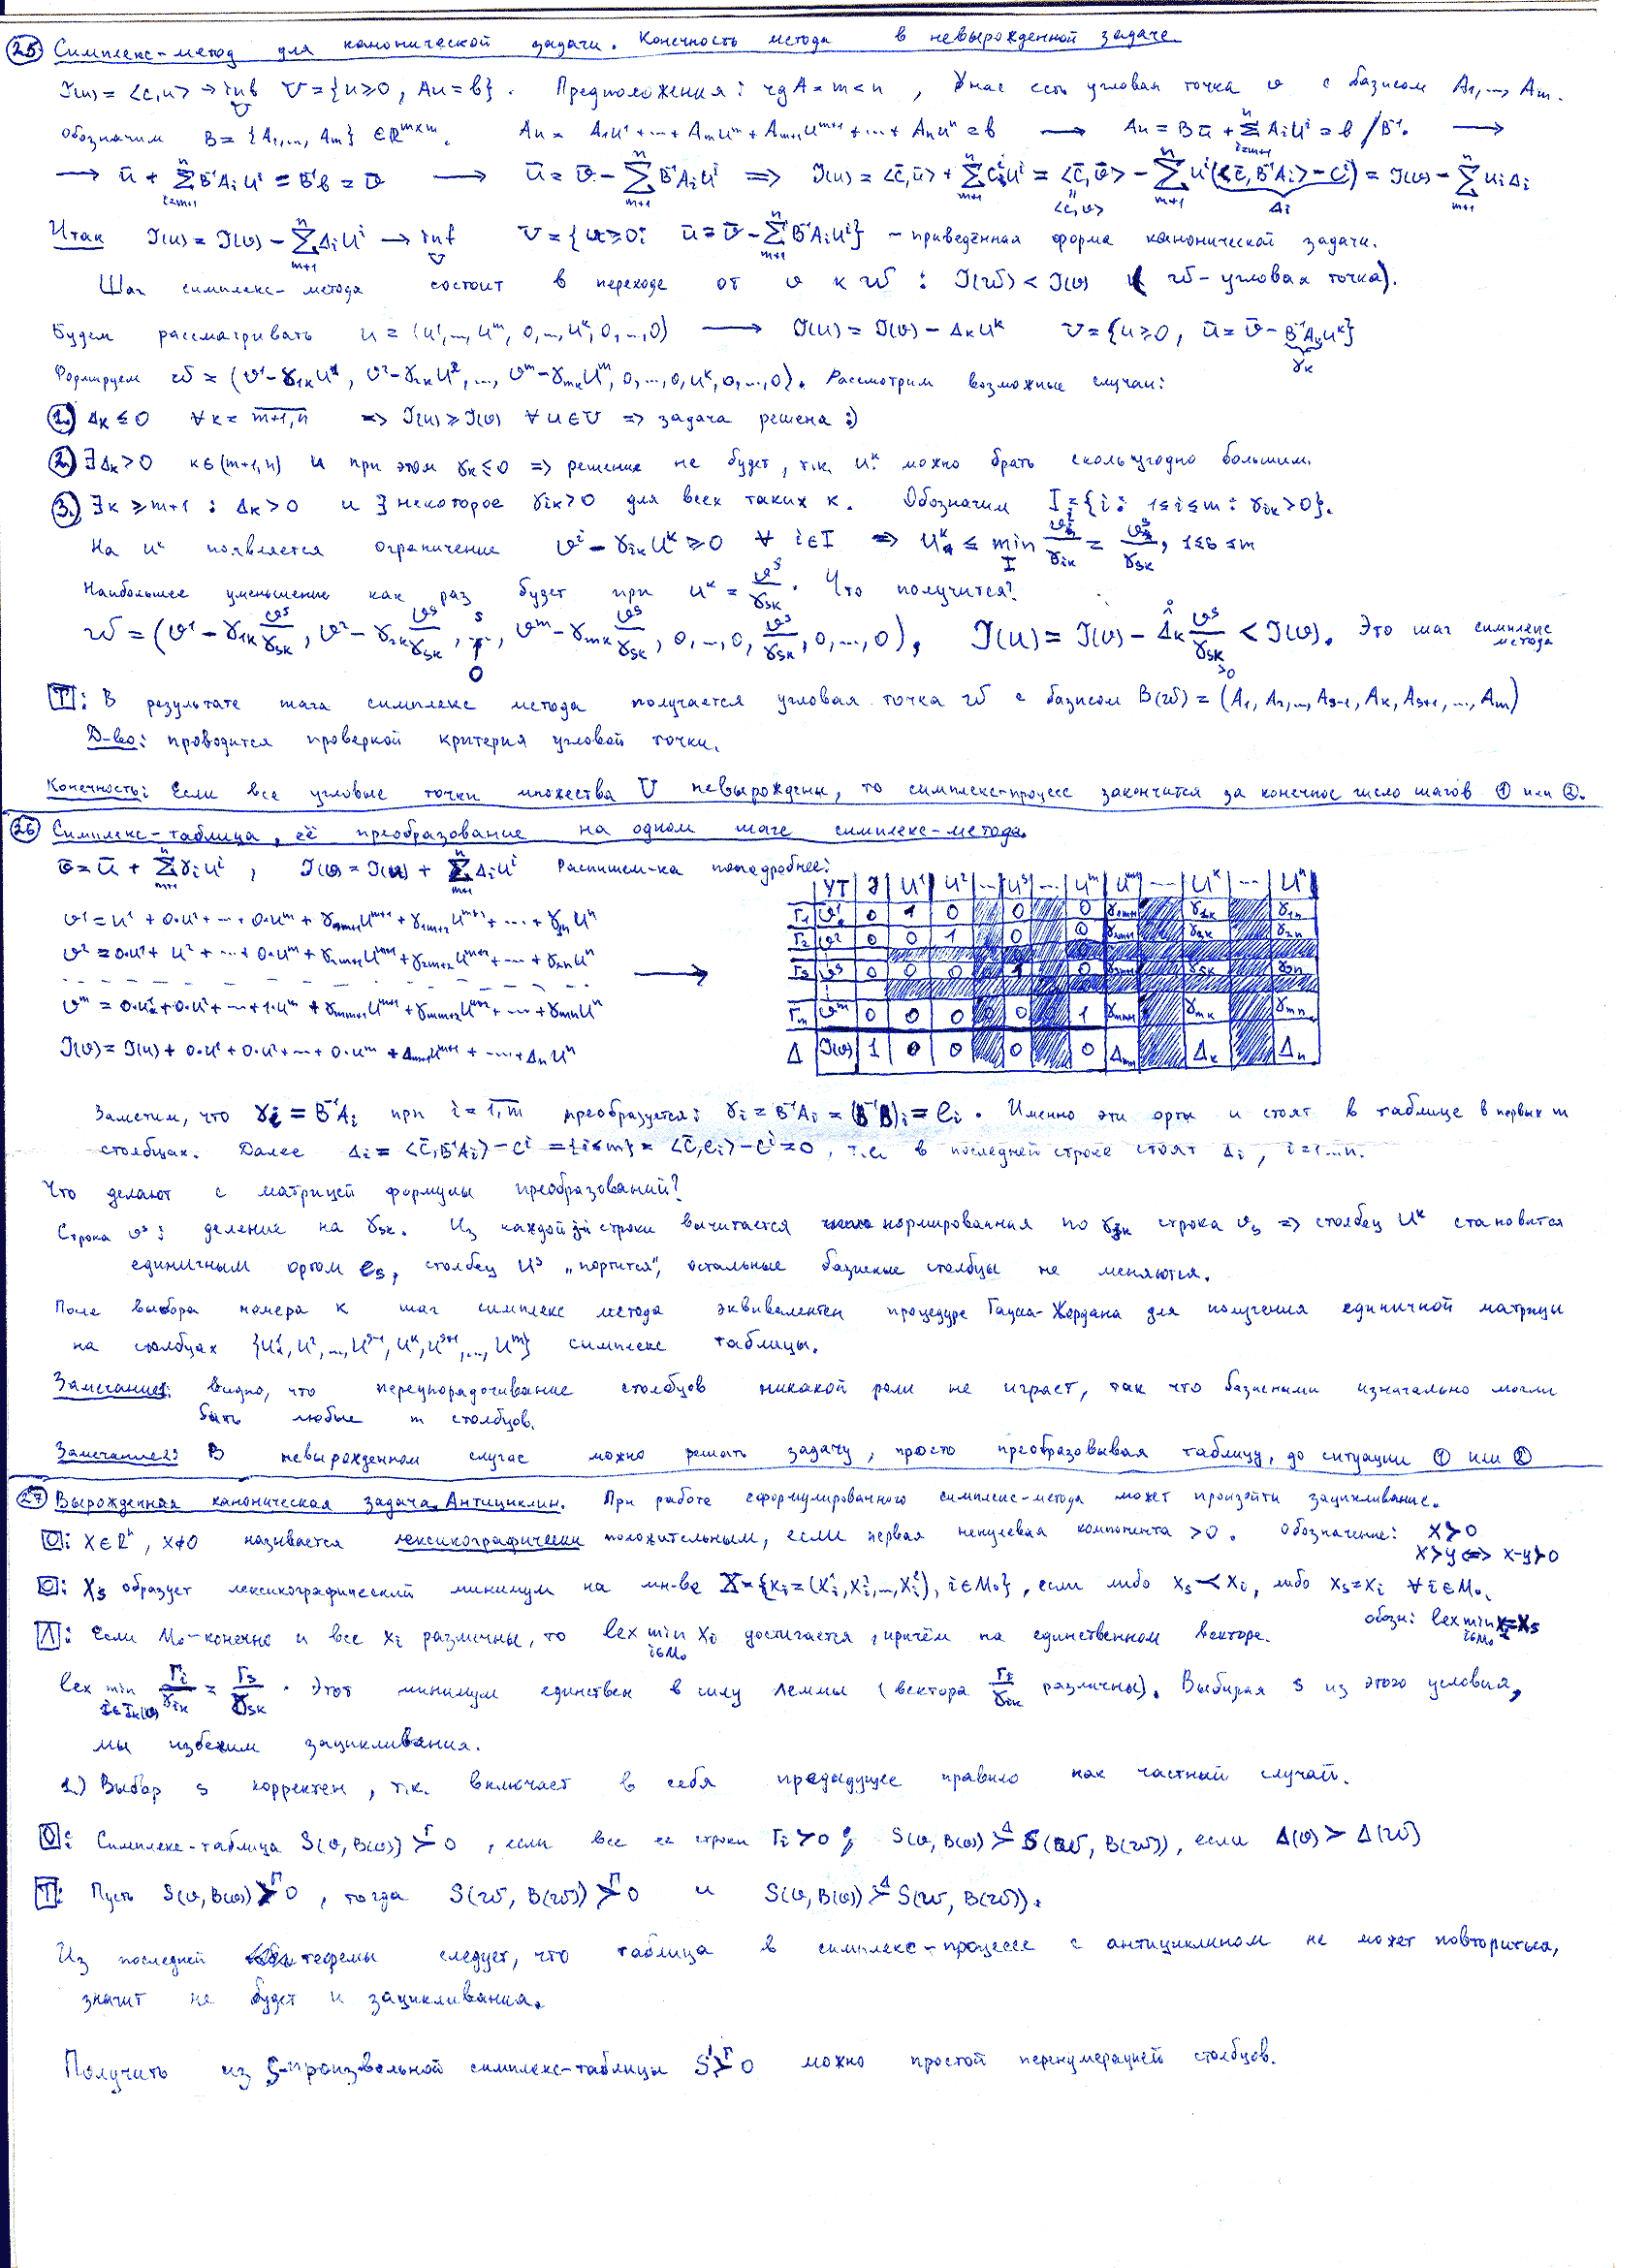 25 Симплекс-метод для канонической задачи. Конечность метода в невырожденной задаче
J(u) = <c,u> → inf U U = {u ≥ 0, Au = b}. Предположения: rg A = m < n, У нас есть угловая точка v с базисом A1, ..., Am.
Обозначим B = {A1, ..., Am} ∈ R^{m×m}. Au = A1u^1 + ... + Amu^m + Am+1u^{m+1} + ... + Anu^n = b → Au = Bū + Σ_{i=m+1}^n Aiu^i = b /B^{-1}. →
→ ū + Σ_{i=m+1}^n B^{-1}Aiu^i = B^{-1}b = v̄ → ū = v̄ - Σ_{m+1}^n B^{-1}Aiu^i => J(u) = <c̄,ū> + Σ_{m+1}^n c^iu^i = <c̄,v̄> - Σ_{m+1}^n u^i(<c̄,B^{-1}Ai> - c^i) = J(v) - Σ_{m+1}^n u^iΔi
<c,v> Δi
Итак J(u) = J(v) - Σ_{m+1}^n Δiu^i → inf U U = {u ≥ 0; ū = v̄ - Σ_{m+1}^n B^{-1}Aiu^i} - приведённая форма канонической задачи.
Шаг симплекс-метода состоит в переходе от v к w : J(w) < J(v) (w - угловая точка).
Будем рассматривать u = (u^1, ..., u^m, 0, ..., u^k, 0, ..., 0) → J(u) = J(v) - Δku^k U = {u ≥ 0, ū = v̄ - B^{-1}Aku^k}
γk
Формируем w = (v^1 - γ1ku^1, v^2 - γ2ku^2, ..., v^m - γmku^m, 0, ..., 0, u^k, 0, ..., 0). Рассмотрим возможные случаи:
1. Δk ≤ 0 ∀k = m+1,n => J(u) ≥ J(v) ∀u ∈ U => задача решена :)
2. ∃Δk > 0 k ∈ (m+1,n) и при этом γk ≤ 0 => решение не будет, т.к. u^k можно брать сколь угодно большим.
3. ∃k ≥ m+1 : Δk > 0 и ∃ некоторое γik > 0 для всех таких k. Обозначим I = {i : 1 ≤ i ≤ m : γik > 0}.
На u^k появляется ограничение v^i - γiku^k ≥ 0 ∀ i ∈ I => u^k ≤ min_I v^i/γik = v^s/γsk, 1 ≤ s ≤ m
Наибольшее уменьшение как раз будет при u^k = v^s/γsk. Что получится?
w = (v^1 - γ1k v^s/γsk, v^2 - γ2k v^s/γsk, ..., v^m - γmk v^s/γsk, 0, ..., 0, v^s/γsk, 0, ..., 0), J(u) = J(v) - Δk v^s/γsk < J(v). Это шаг симплекс метода
T: В результате шага симплекс метода получается угловая точка w с базисом B(w) = (A1, A2, ..., As-1, Ak, As+1, ..., Am)
Д-во: проводится проверкой критерия угловой точки.
Конечность: Если все угловые точки множества U невырождены, то симплекс-процесс закончится за конечное число шагов ① или ②.
26 Симплекс-таблица, её преобразование на одном шаге симплекс-метода.
v̄ = ū + Σ_{m+1}^n γiu^i, J(v) = J(u) + Σ_{m+1}^n Δiu^i Распишем-ка поподробнее:
УТ J u^1 u^2 ... u^s ... u^m u^{m+1} ... u^k ... u^n
v^1 = u^1 + 0·u^2 + ... + 0·u^m + γ1m+1u^{m+1} + γ1m+2u^{m+2} + ... + γ1nu^n
Γ1 v^1 0 1 0 0 0 γ1m+1 γ1k γ1n
v^2 = 0·u^1 + u^2 + ... + 0·u^m + γ2m+1u^{m+1} + γ2m+2u^{m+2} + ... + γ2nu^n
Γ2 v^2 0 0 1 0 0 γ2m+1 γ2k γ2n
Γs v^s 0 0 0 1 0 γsm+1 γsk γsn
v^m = 0·u^1 + 0·u^2 + ... + 1·u^m + γmm+1u^{m+1} + γmm+2u^{m+2} + ... + γmnu^n
Γm v^m 0 0 0 0 1 γmm+1 γmk γmn
J(v) = J(u) + 0·u^1 + 0·u^2 + ... + 0·u^m + Δm+1u^{m+1} + ... + Δnu^n
Δ J(v) 1 0 0 0 0 Δm+1 Δk Δn
Заметим, что γi = B^{-1}Ai при i = 1,m преобразуется: γi = B^{-1}Ai = (B^{-1}B)i = ei. Именно эти орты и стоят в таблице в первых m
столбцах. Далее Δi = <c̄,B^{-1}Ai> - c^i = {i ≤ m} = <c̄,ei> - c^i = 0, т.е. в последней строке стоят Δi, i = 1...n.
Что делают с матрицей формулы преобразований?
Строка v^s: деление на γsk. Из каждой строки вычитается нормированная по строка vs => столбец u^k становится
единичным ортом es, столбец u^s „портится“, остальные базисные столбцы не меняются.
После выбора номера k шаг симплекс метода эквивалентен процедуре Гаусса-Жордана для получения единичной матрицы
на столбцах {u^1, u^2, ..., u^{s-1}, u^k, u^{s+1}, ..., u^m} симплекс таблицы.
Замечание1: Видно, что переупорядочивание столбцов никакой роли не играет, так что базисными изначально могли
быть любые m столбцов.
Замечание2: В невырожденном случае можно решать задачу, просто преобразовывая таблицу, до ситуации ① или ②
27 Вырожденная каноническая задача. Антициклин. При работе сформулированного симплекс-метода может произойти зацикливание.
O: x ∈ R^k, x ≠ 0 называется лексикографически положительным, если первая ненулевая компонента > 0. Обозначение: x ≻ 0
x ≻ y <=> x-y ≻ 0
O: Xs образует лексикографический минимум на мн-ве X = {xi = (xi^1, xi^2, ..., xi^l), i ∈ M0}, если либо xs ≺ xi, либо xs = xi ∀i ∈ M0.
обозн: lex min_{i∈M0} xi = xs
Λ: Если M0 - конечно и все xi различны, то lex min_{i∈M0} xi достигается, причём на единственном векторе.
lex min_{i∈Ik(v)} Γi/γik = Γs/γsk. Этот минимум единствен в силу леммы (вектора Γi/γik различны). Выбирая s из этого условия,
мы избежим зацикливания.
1) Выбор s корректен, т.к. включает в себя предыдущее правило как частный случай.
O: Симплекс-таблица S(v,B(v)) ≻^Γ 0, если все её строки Γi ≻ 0; S(v,B(v)) ≻^Δ S(w,B(w)), если Δ(v) ≻ Δ(w)
T: Пусть S(v,B(v)) ≻^Γ 0, тогда S(w,B(w)) ≻^Γ 0 и S(v,B(v)) ≻^Δ S(w,B(w)).
Из последней теоремы следует, что таблица в симплекс-процессе с антициклином не может повториться,
значит не будет и зацикливания.
Получить из S-произвольной симплекс-таблицы S' ≻^Γ 0 можно простой перенумерацией столбцов.